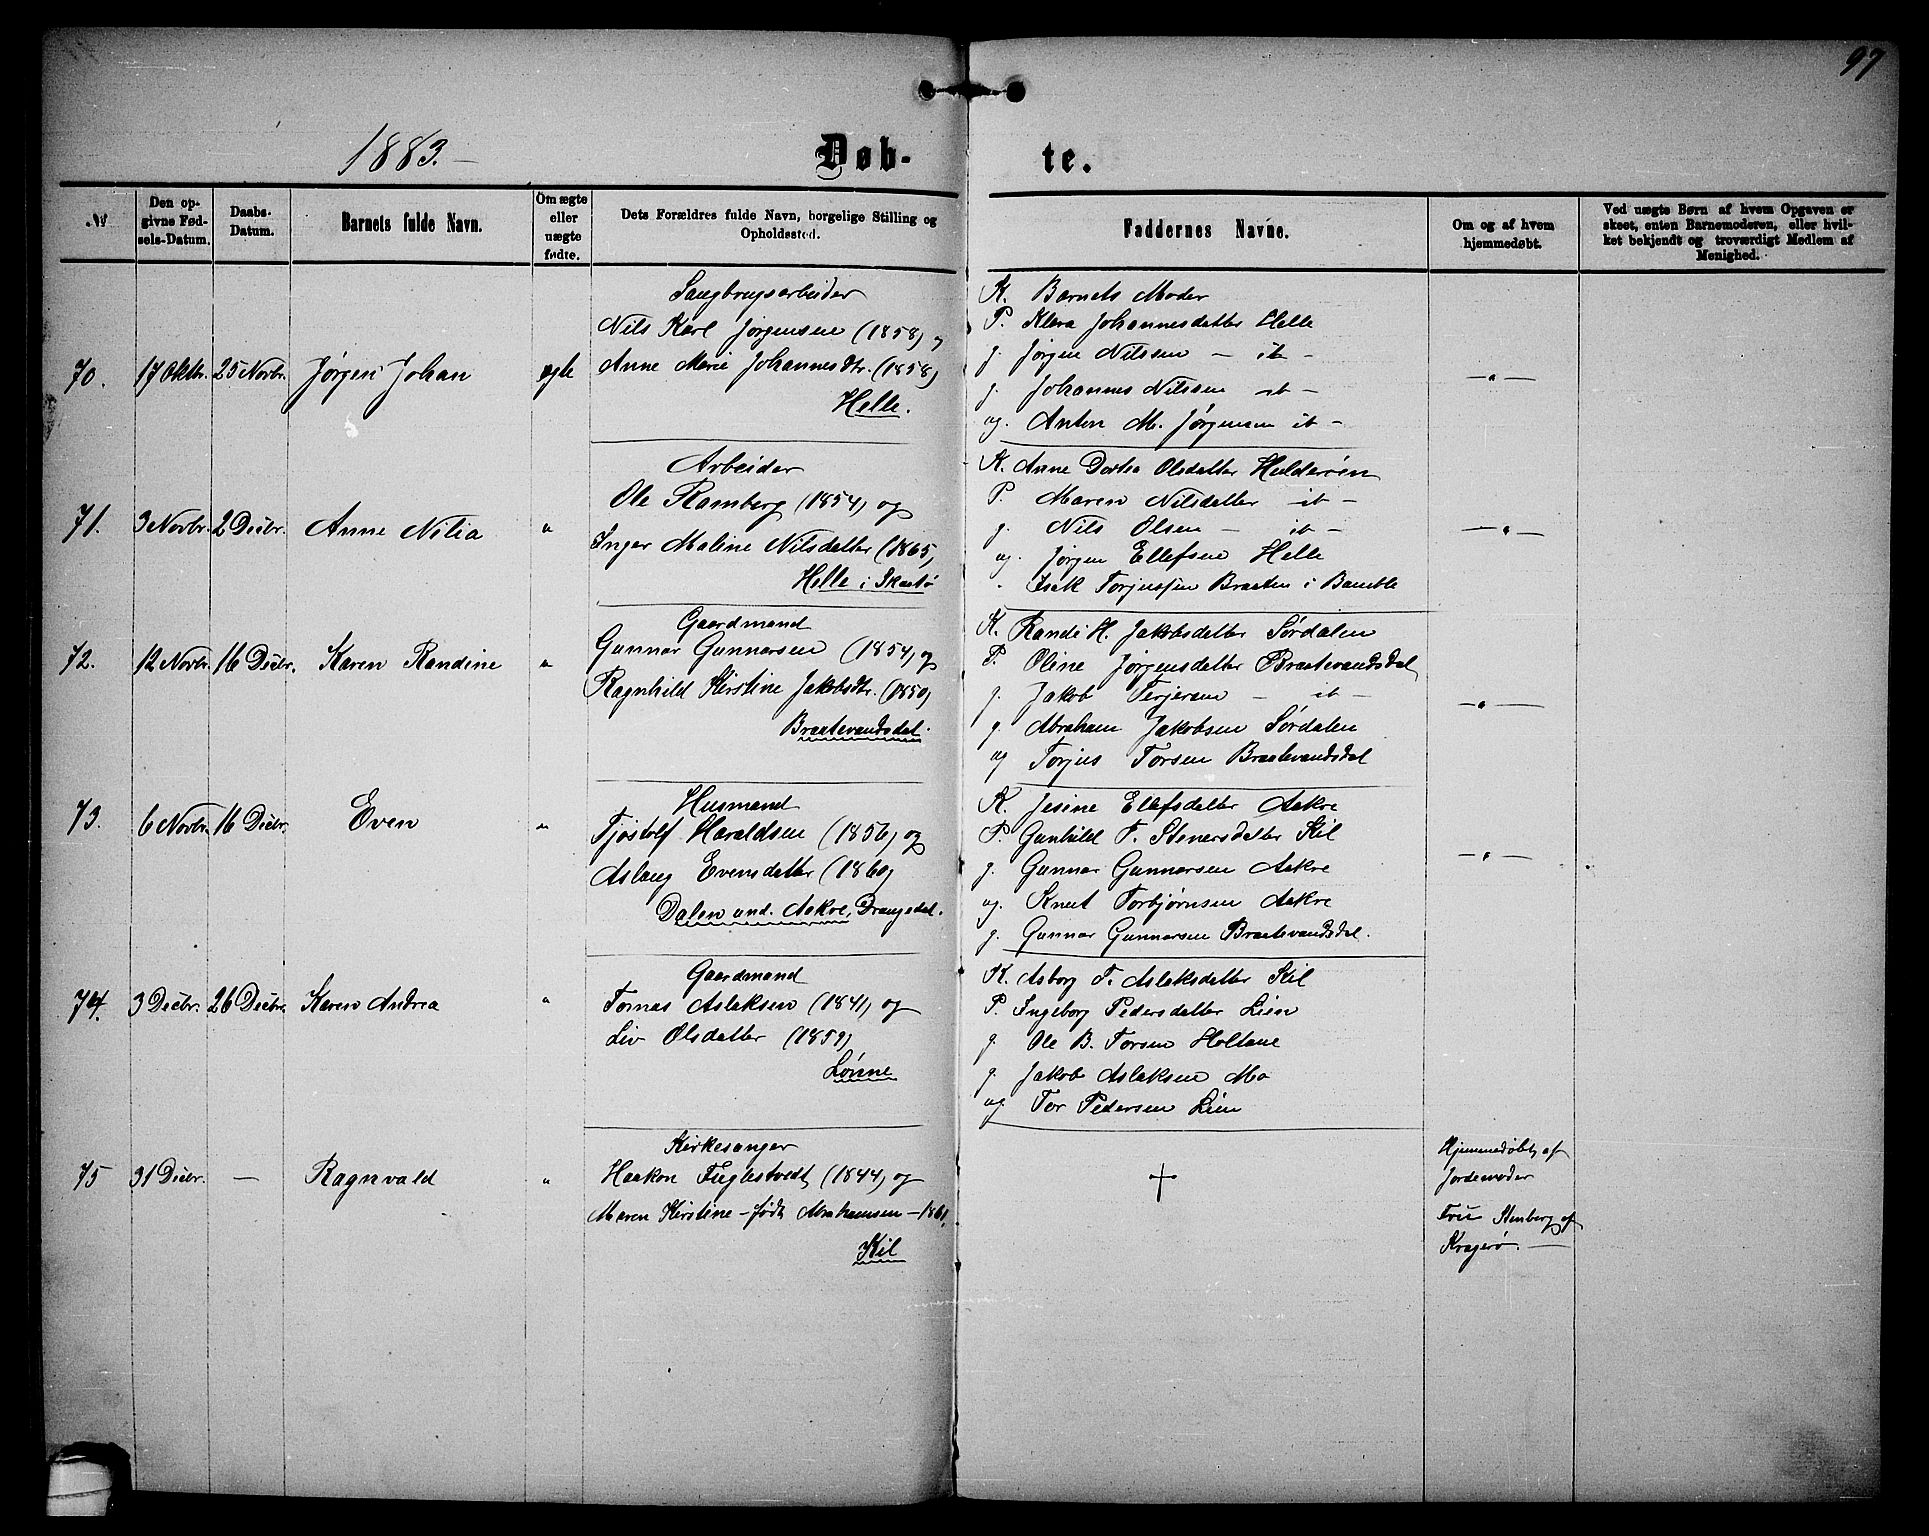 97
1883.-
Døb-
te.
№
Den op-
givne Fød-
sels-Datum.
Daabs-
Datum.
Barnets fulde Navn.
Om ægte
eller
uægte
fødte.
Dets Forældres fulde Navn, borgelige Stilling og
Opholdssted.
Faddernes Navne.
Om og af hvem
hjemmedøbt.
Ved uægte Børn af hvem Opgaven er
skeet, enten Barnemoderen, eller hvil-
ket bekjendt og troværdigt Medlem af
Menighed.
70. 17 Oktbr. 25 Novbr. Jørgen Johan ægte
Saugbrugsarbeider
Nils Karl Jørgensen (1858) og
Anne Marie Johannesdtr. (1858)
Helle.
K. Barnets Moder
P. Klara Johannesdatter Helle
g. Jørgen Nilssen - it -
g. Johannes Nilssen it -
og. Anton M. Jørgensen it -
-"-
71. 3 Novbr. 2 Decbr. Anne Nilia "
Arbeider
Ole Ramberg (1854) og
Inger Maline Nilsdatter (1865)
Helle i Skaatø
K. Anne Dortea Olsdatter Hulderøen
P. Maren Nilsdatter it -
g. Nils Olsen - it -
og. Jørgen Ellefsen Helle
" Isak Torjussen Braaten i Bamble
-"-
72. 12 Novbr. 16 Decbr. Karen Randine "
Gaardmand
Gunnar Gunnarsen (1854) og
Ragnhild Kirstine Jakobsdtr. (1850)
Braatevandsdal.
K. Randi H. Jakobsdatter Sørdalen
P. Oline Jørgensdatter Braatevandsdal
g. Jakob Terjersen - it -
g. Abraham Jakobsen Sørdalen
og Torjus Torsen Braatevandsdal
-"-
73. 6 Novbr. 16 Decbr. Even "
Husmand
Tjostolf Haraldsen (1856) og
Aslaug Evensdatter (1860)
Dalen und. Aakre, Drangedal.
K. Jesine Ellefsdatter Aakre
P. Gunhild T. Stenersdatter Kil
g. Gunnar Gunnarsen Aakre
og. Knut Torbjørnsen Aakre
g. Gunnar Gunnarsen Braatevandsdal.
-"-
74. 3 Decbr. 26 Decbr. Karen Andrea "
Gaardmand
Tomas Aslaksen (1841) og
Liv Olsdatter (1859)
Lønne
K. Asborg T. Aslaksdatter Kil
P. Ingeborg Pedersdatter Lien
g. Ole B. Torsen Holtane
g. Jakob Aslaksen Mo
og. Tor Pedersen Lien
75 31 Decbr. - Ragnvald "
Kirkesanger
Haakon Fuglestvedt (1844) og
Maren Kirstine - født Abrahamsen - 1861,
Kil
†
Hjemmedøbt af
Jordemoder
Fru Stenberg af
Kragerø. -